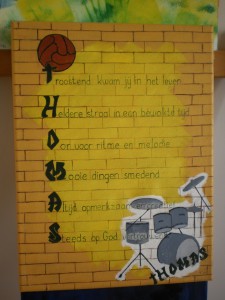 Troostend kwam jij in het leven
Heldere straal in een bewolkte tijd
Oor voor ritme en melodie
Mooie dingen smedend
Altijd opmerkzaam
Steeds op God
THOMAS